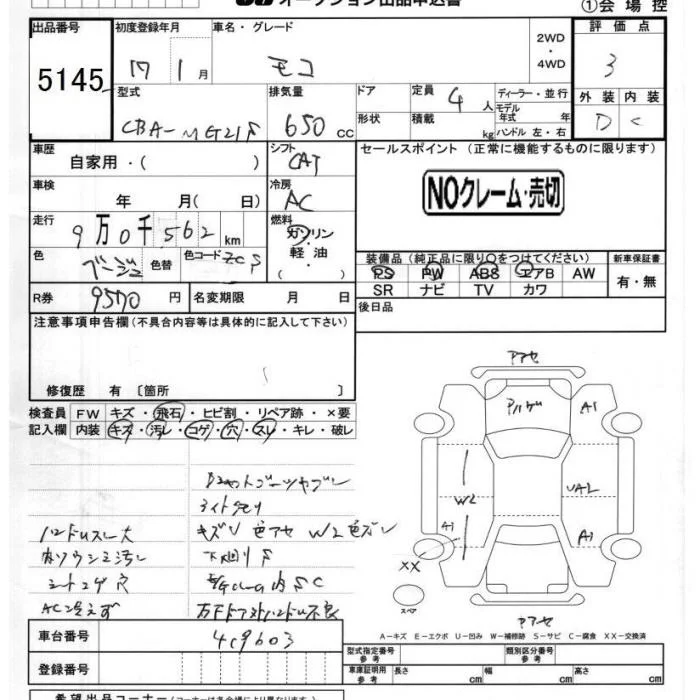 オークション出品申込書
①会場控
出品番号 初度登録年月 車名・グレード 2WD ・ 4WD 評価点
5145 17 1月 モコ 3
型式 排気量 ドア 定員 4人 ディーラー・並行 外装 内装
CBA-MG21S 650cc 形状 積載 kg モデル年式 年 ハンドル 左・右 D C
車歴 シフト セールスポイント (正常に機能するものに限ります)
自家用・( ) CAT
車検 冷房
年 月( 日) AC
NOクレーム・売切
走行 燃料
9万0千562km ガソリン
軽油
( )
色 色替 色コード
ベージュ ZCS
装備品(純正品に限り○をつけてください) 新車保証書
PS PW ABS エアB AW 有・無
SR ナビ TV カワ
R券 9570円 名変期限 月 日 後日品
注意事項申告欄(不具合内容等は具体的に記入して下さい)
修復歴 有〔箇所 〕
検査員 FW キズ・飛石・ヒビ割・リペア跡・×要
記入欄 内装 キズ・汚レ・コゲ・穴・スレ・キレ・破レ
アセ
アハゲ A1
W2 UAL
A1 A1
XX
スペア
アセ
ライトクモリ
ハンドルスレ大 キズU 色アセ W2色ズレ
内ソウシミ汚レ 下廻りS
シートコゲ穴
AC冷えず
A-キズ E-エクボ U-凹み W-補修跡 S-サビ C-腐食 XX-交換済
車台番号 419603
登録番号
型式指定番号 参考 類別区分番号 参考
車庫証明用 参考 長さ cm 幅 cm 高さ cm
希望出品コーナー